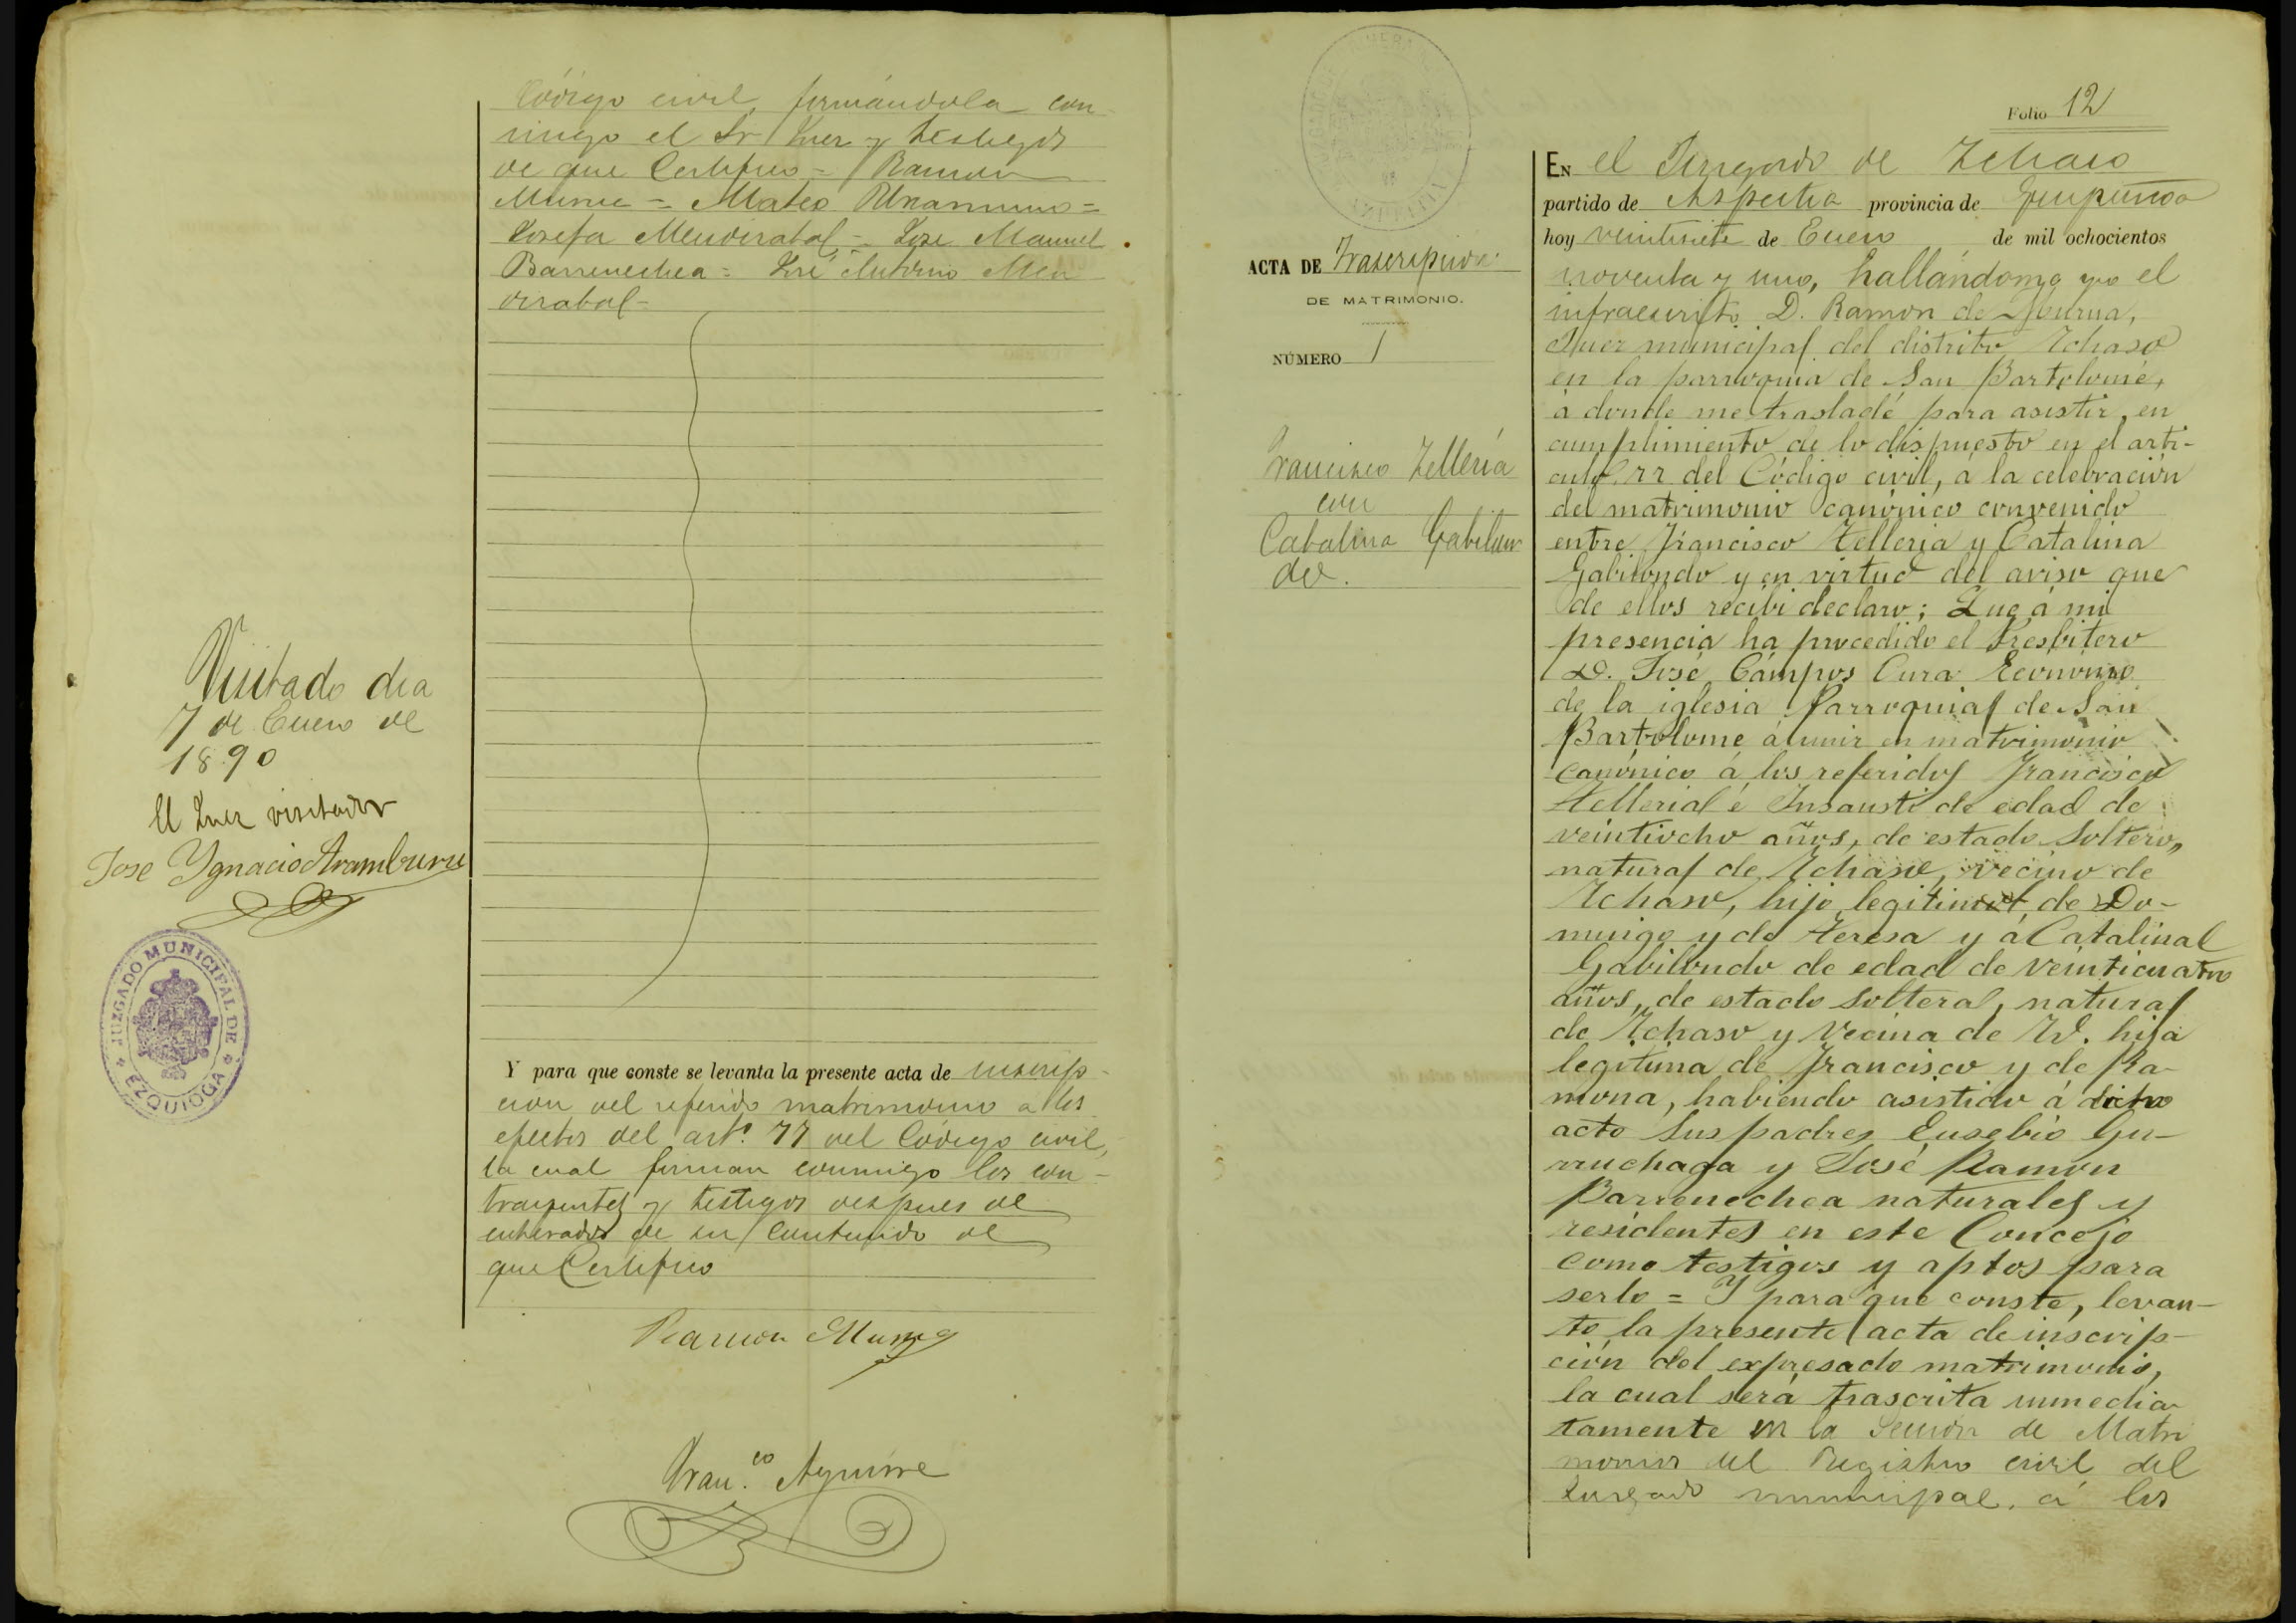 Código civil, firmándola con
migo el Sr Juez y testigos
de que Certifico = Ramon
Munua = Mateo Unamuno =
Josefa Mendizabal = Jose Manuel
Barrenechea = José Antonio Men
dizabal =
Visitado dia
7 de Enero de
1890
El Juez visitador
Jose Ygnacio Aramburu
JUZGADO MUNICIPAL DE
EZQUIOGA
Y para que conste se levanta la presente acta de inscrip-
cion del referido matrimonio a los
efectos del artº. 77 del Código civil,
la cual firman conmigo los con-
trayentes y testigos despues de
enterados de su contenido de
que Certifico
Ramon Munua
Franco Aguirre
Folio 12
ACTA DE Trascripcion
DE MATRIMONIO.
NÚMERO 1
Francisco Tellería
con
Catalina Gabilon
do.
EN el Juzgado de Ichaso
partido de Azpeitia provincia de Guipúzcoa
hoy veintisiete de Enero de mil ochocientos
noventa y uno, hallándome yo el
infraescrito D. Ramon de Munua,
Juez municipal del distrito Ichaso
en la parroquia de San Bartolomé,
á donde me trasladé para asistir, en
cumplimiento de lo dispuesto en el artí-
culo 77 del Código civil, á la celebración
del matrimonio canónico convenido
entre Francisco Telleria y Catalina
Gabilondo y en virtud del aviso que
de ellos recibí declaro; Que á mi
presencia ha procedido el Presbitero
D. José Campos Cura Ecónomo
de la iglesia Parroquial de San
Bartolome á unir en matrimonio
canónico á los referidos Francisco
Telleria é Insausti de edad de
veintiocho años, de estado Soltero,
natural de Ichaso, vecino de
Ichaso, hijo legitimo de Do-
mingo y de Teresa y á Catalina
Gabilondo de edad de veinticuatro
años, de estado Soltera, natural
de Ichaso y vecina de Id. hija
legítima de Francisco y de Ra-
mona, habiendo asistido á dicho
acto Sus padres Eusebio Gu-
ruchaga y José Ramon
Barrenechea naturales y
residentes en este Concejo
como testigos y aptos para
serlo = Y para que conste, levan-
to la presente acta de inscrip-
ción del expresado matrimonio,
la cual será trascrita inmedia-
tamente en la Sección de Matri
monios del Registro civil del
Juzgado municipal, á los